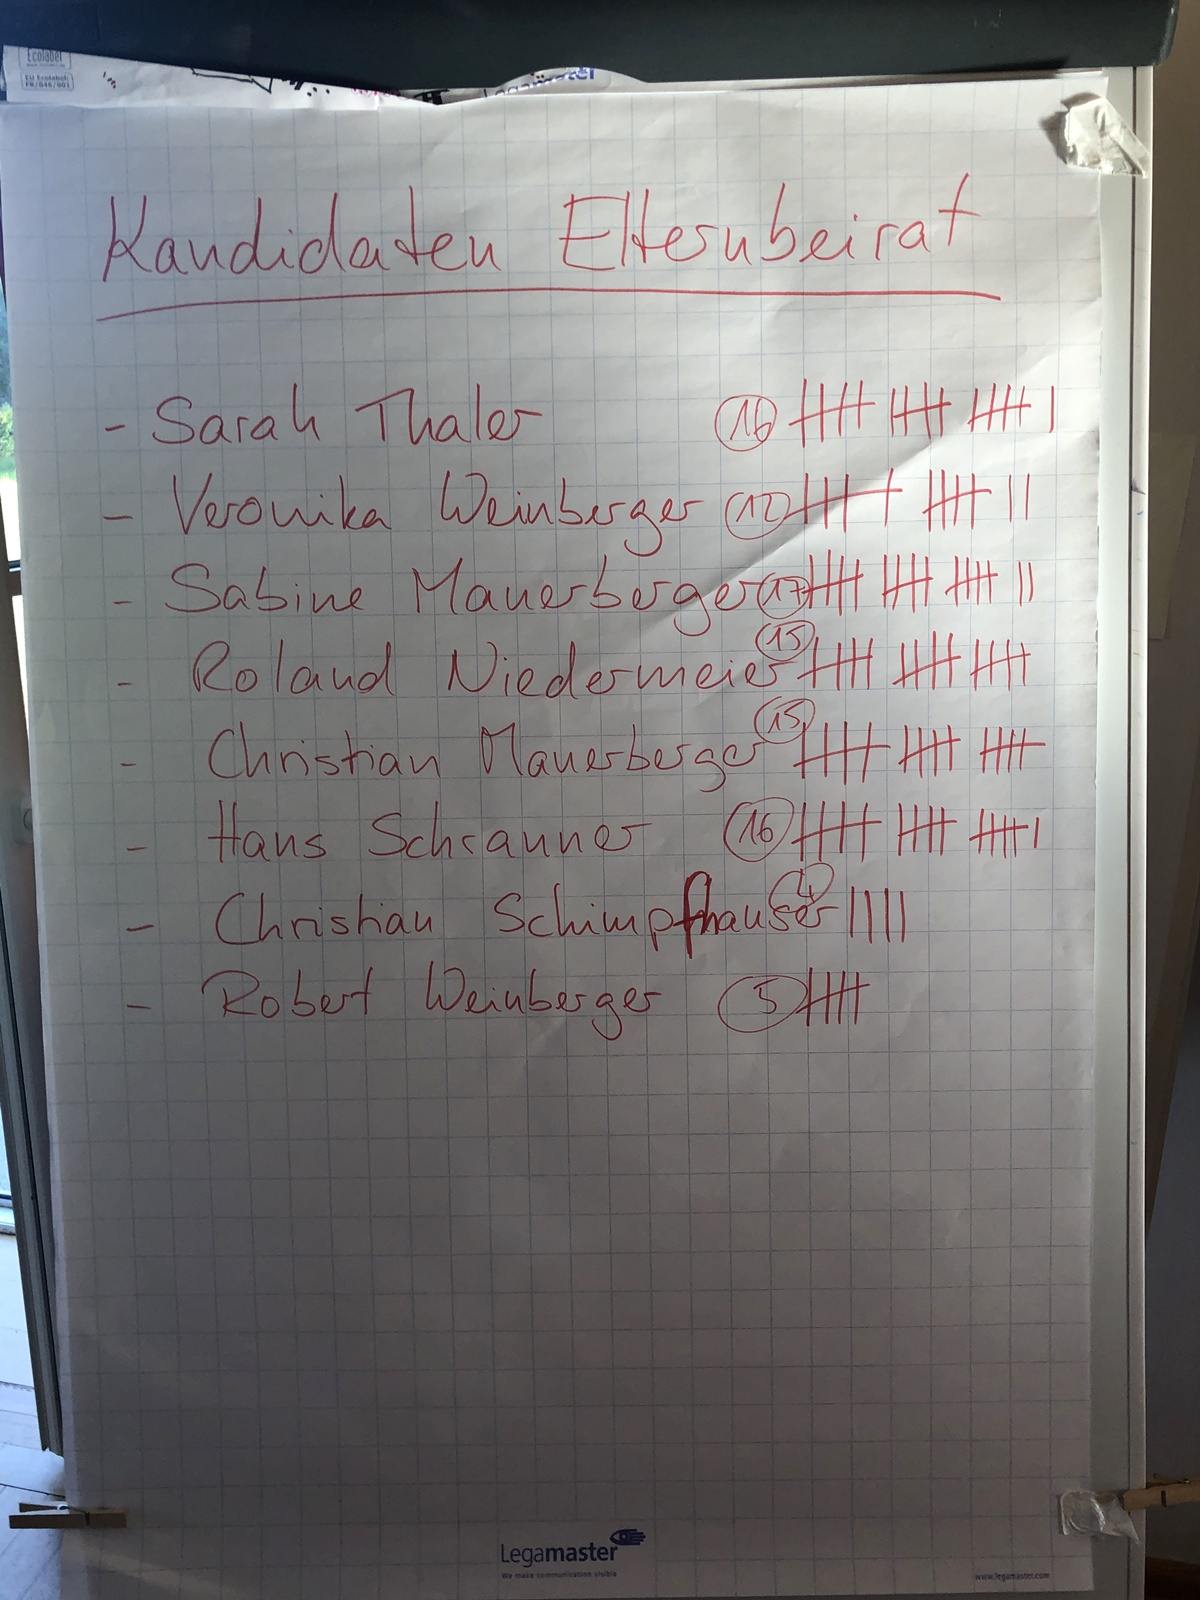 Ecolabel
EU Ecolabel:
FR/046/001
Legamaster
Kandidaten Elternbeirat
- Sarah Thaler 16 |||| |||| |||| |
- Veronika Weinberger 12 |||| |||| ||
- Sabine Mauerberger 17 |||| |||| |||| ||
- Roland Niedermeier 15 |||| |||| ||||
- Christian Mauerberger 15 |||| |||| ||||
- Hans Schranner 16 |||| |||| |||| |
- Christian Schimpfhauser 4 ||||
- Robert Weinberger 5 ||||
Legamaster
We make communication visible
www.legamaster.com